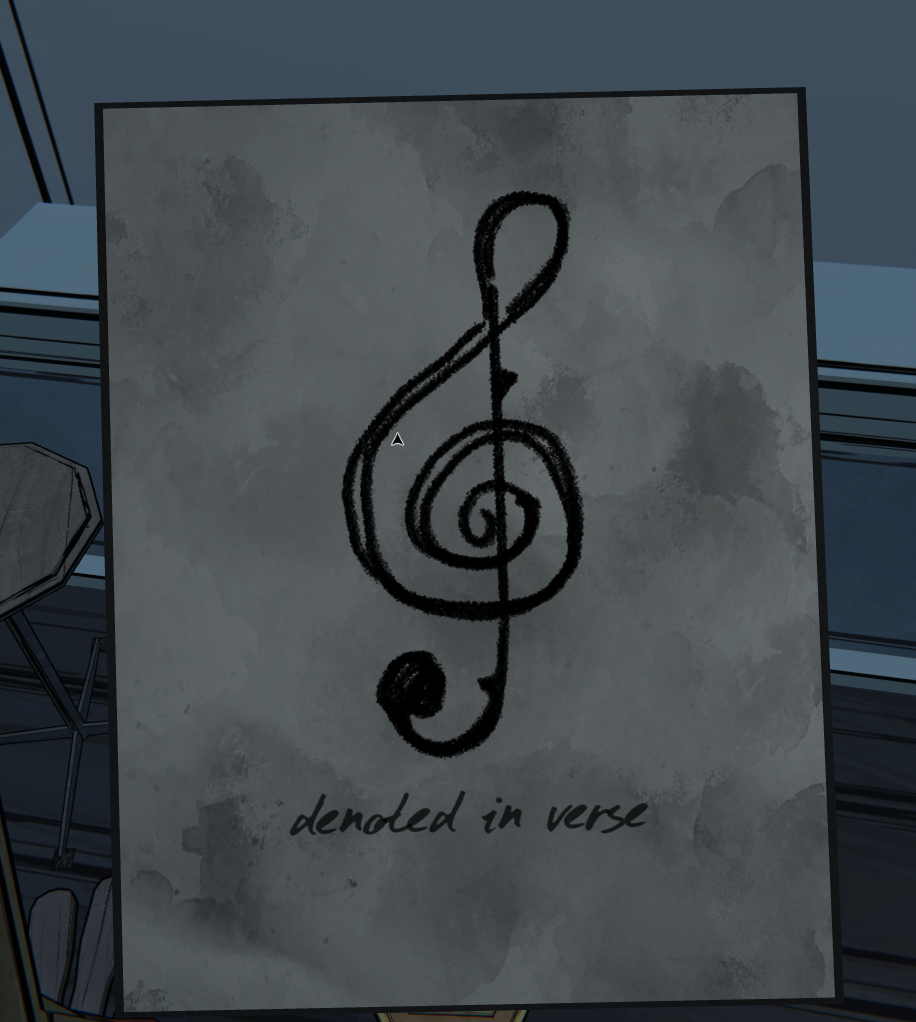 denoted in verse